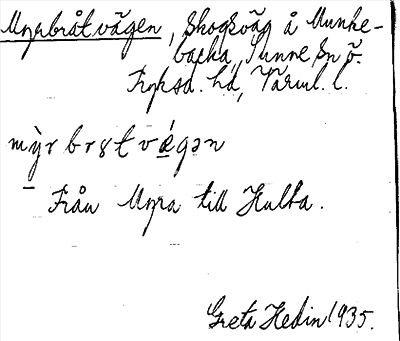 Myrbråtvägen, Skogsväg å Munke-
backa, Sunne Sn Ö.
Fryksd. hd, Värml. l.
mỳrbrɤtvǽgən
Från Myra till Hulta.
Greta Hedin 1935.